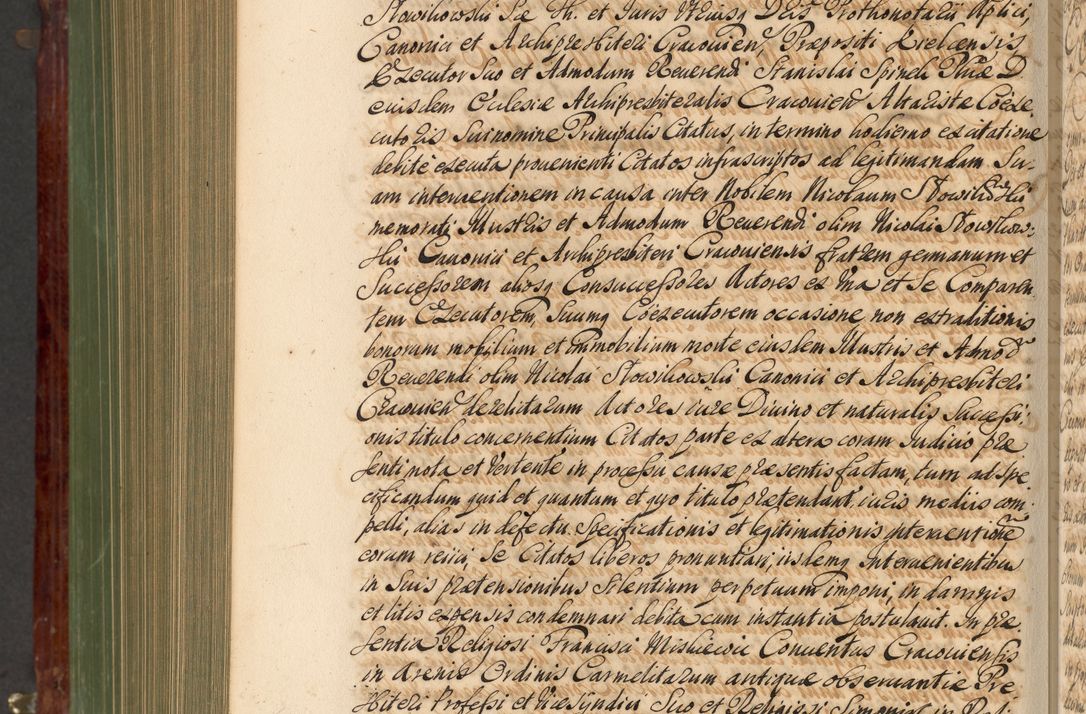 Slowikowski Sae Th. et Juris Utriusq Dris Prothonotarii Aplici,
Canonici et Archipresbiteri Cracovien, Præpositi Kielcensis,
Executor Suo et Admodum Reverendi Stanislai Spinek Phiæ D
eiusdem Ecclesiæ Archipresbiteralis Cracovien Altaristæ Coexe
cutoris Sui nomine Principalis Citatus, in termino hodierno ex citatione
debite executa provenienti Citatos infrascriptos ad legitimandam Su-
am interventionem in causa inter Nobilem Nicolaum Slowikowski
memorati Illustris et Admodum Reverendi olim Nicolai Slowikow-
ski Canonici et Archipresbiteri Cracoviensis fratrem germanum et
Successorem aliosq Consuccessores Actores ex Una et se Comparen
tem Executorem, Suumq Coexecutorem occasione non extraditionis
bonorum mobilium et immobilium morte eiusdem Illustris et Admod
Reverendi olim Nicolai Slowikowski Canonici et Archipresbiteri
Cracovien derelitarum Actores iure Divino et naturalis Successi
onis titulo concernentium Citatos parte ex altera coram Judicio præ
senti nota et Vertente in processu causæ præsentis factam, tum ad spe
cificandum quid et quantum et quo titulo prætendant iuris mediis com
pelli, alias in defectu Specificationis et legitimationis interventione
coram reiici, se Citatos liberos pronuntiari, iisdemq Intervenientibus
in Suis prætensionibus Silentium perpetuum imponi, in damnis
et litis expensis condemnari debita cum instantia postulavit. In præ
sentia Religiosi Francisci Miskiewicz Conventus Cracoviensis
in Arenis Ordinis Carmelitarum antiquæ observantiæ Pre
sbiteri Professi et Vicesyndici Suo et Religiosi